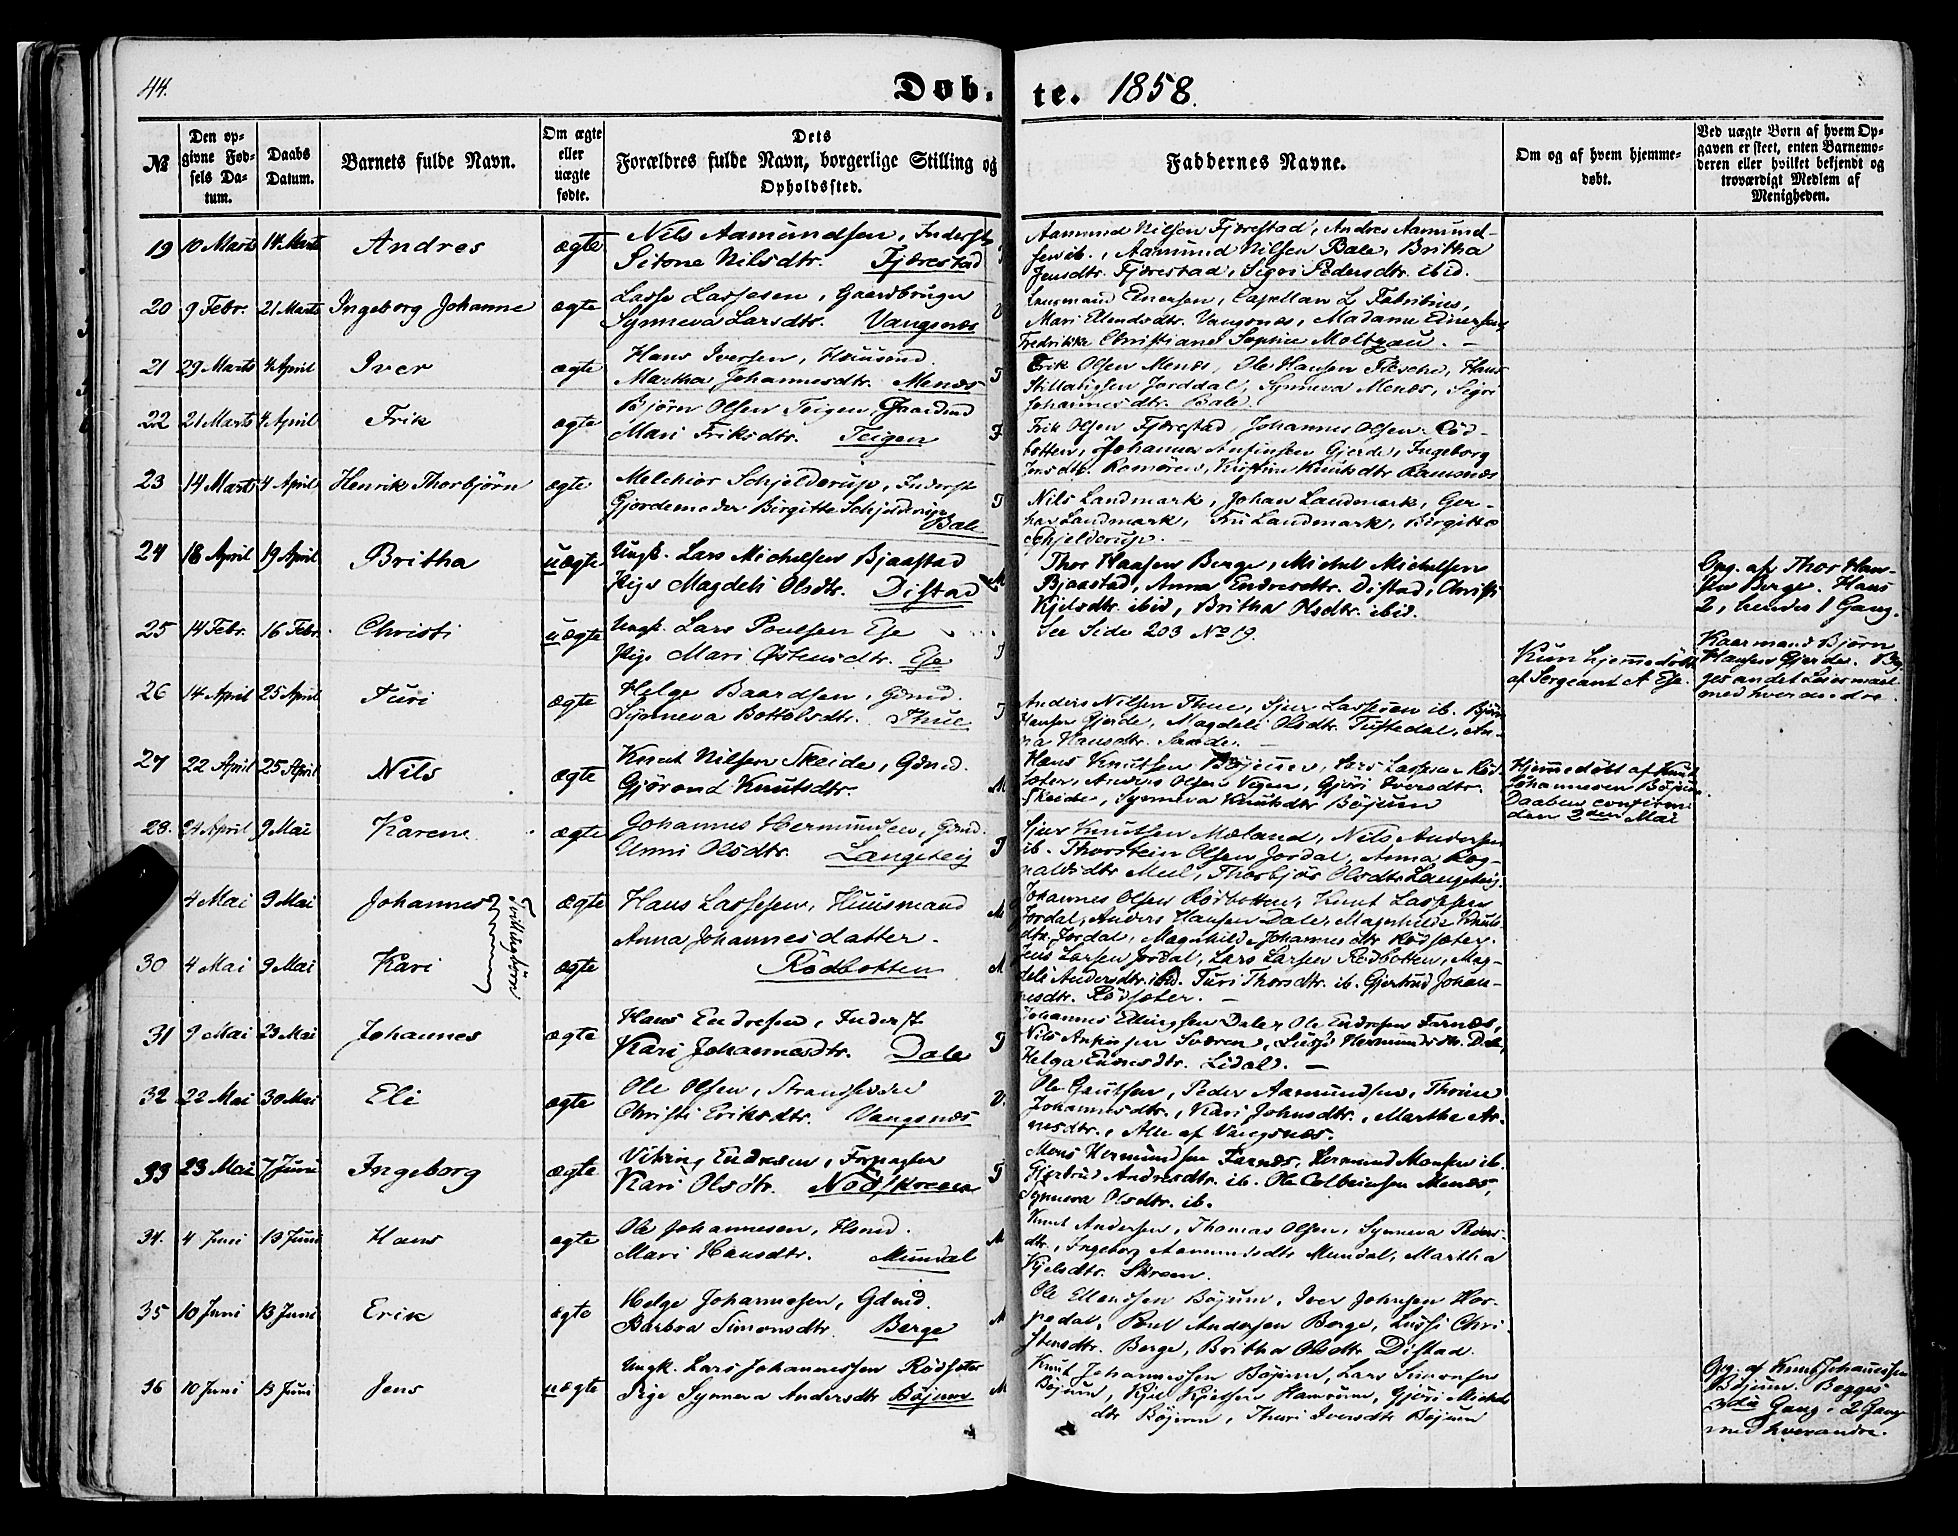 44.
Døb-
te. 1858.
№
Den op-
givne Fød-
sels Da-
tum.
Daabs
Datum.
Barnets fulde Navn.
Om ægte
eller
uægte
fødte.
Dets
Forældres fulde Navn, borgerlige Stilling og
Opholdssted.
Faddernes Navne.
Om og af hvem hjemme-
døbt.
Ved uægte Børn af hvem Op-
gaven er skeet, enten Barnemo-
deren eller hvilket bekjendt og
troværdigt Medlem af
Menigheden.
19 10 Marts 14 Marts Andres ægte Nils Aamundsen, Inderst
Sitone Nilsdtr. Fjærestad
Aamund Nilsen Fjærestad, Andres Aamund-
sen ib., Aamund Nilsen Bale, Britha
Jensdtr. Fjærestad, Sigri Pedersdtr. ibid.
20 9 Febr. 21 Marts Ingeborg Johanne ægte Lasse Lassesen, Gaardbruger
Synneva Larsdtr. Vangsnæs
Lensmand Einersen, Capellan L Fabritius,
Mari Ellendsdtr. Vangsnæs, Madame Einersen,
Fredrikke Christiane Sophie Moltzau. –
21 29 Marts 4 April Iver ægte Hans Iversen, Huusmd.
Martha Johannesdtr. Menæs
Erik Olsen Menæs, Ole Hansen Flesche, Hans
Jorddal, Synneva Menæs, Sigri
Johannesdtr. Bale.
22 21 Marts 4 April Erik ægte Bjørn Olsen Teigen, Gaardmd
Mari Eriksdtr. Teigen
Erik Olsen Fjærestad, Johannes Olsen Rød-
botten, Johannes Anfinsen Gjerde, Ingeborg
Jensdtr. Romøren, Kristine Knutsdtr Ramsnæs
23 14 Marts 4 April Henrik Thorbjörn ægte Melchior Schjelderup, Inderst
Gjordemoder Birgitte Schjelderup
Bale
Nils Landmark, Johan Landmark, Ger-
hard Landmark, Fru Landmark, Birgitte
Schjelderup. –
24 18 April 19 April Britha uægte Ungk. Lars Michelsen Bjaastad
Pige Magdeli Olsdtr. Distad
Thor Hansen Berge, Michel Michelsen
Bjaastad, Anna Endresdtr. Distad, Christi
Kjelsdtr. ibid, Britha Olsdtr. ibid.
Opg. af Thor Han-
sen Berge. Hans
2, hendes 1 Gang.
25 14 Febr. 16 Febr. Christi uægte Ungk. Lars Poulsen Ese
Pige Mari Østensdtr. Ese
See Side 203 No 19.
Kun hjemmedöbt
af Sergeant A Ese.
Kaarmand Bjørn
Hansen Gjerde. Beg-
ges andet Leiermaal
med hverandre
26 14 April 25 April Turi ægte Helge Baardsen, Gdmd.
Synneva Bottolsdtr. Thue
Anders Nilsen Thue, Sjur Lassesen ib. Bjørn
Hansen Gjerde, Magdeli Olsdtr. Tuftedal, An-
na Hansdtr. Sande. –
27 22 April 25 April Nils ægte Knut Nilsen Skeide, Gdmd.
Gjörond Knutsdtr.
Hans Knutsen Böjum, Lars Lassesen Röd-
seter, Anders Olsen Vigen, Gjöri Iversdtr.
Skeide, Synneva Knutsdtr Böjum
Hjemmedöbt af Knut
Johannesen Böjum.
Daaben confirm.
den 2den Mai
28. 24 April 9 Mai Karen ægte Johannes Hermundsen, Gdmd.
Unni Olsdtr. Langeteig
Sjur Knutsen Mæland, Nils Andersen
ib. Thorstein Olsen Jordal, Anna Rog-
naldsdtr Meel, Thorbjör Olsdtr Langeteig.
4 Mai 9 Mai Johannes ægte Hans Lassesen, Huusmand
Anna Johannesdatter.
Johannes Olsen Rødbotten, Knut Lassesen
Jordal, Anders Hansen Dale, Magnhilde Knuts-
dtr. Jordal, Magnhild Johannesdtr Rødseter.
Tvillingbörn
30 4 Mai 9 Mai Kari ægte Rödbotten
Jens Larsen Jordal, Lars Larsen Rødbotten, Mag-
deli Andersdtr. ibid. Turi Thorsdtr. ib. Gjertrud Johan-
nesdtr. Rödseter. –
31 9 Mai 23 Mai Johannes ægte Hans Endresen, Inderst
Kari Johannesdtr. Dale
Johannes Ellingsen Dale, Ole Endresen Farnæs,
Nils Anfinsen Sværen, Lussi Hermundsdtr. Dale,
Helga Endresdtr. Lidal. –
32 22 Mai 30 Mai Eli ægte Ole Olsen, Strandsidder
Christi Eriksdtr. Vangsnæs
Ole Gautsen, Peder Aamundsen, Thorine
Johannesdtr., Kari Johnsdtr., Marthe Ar-
nesdtr., Alle af Vangsnæs.
33 23 Mai 7 Juni Ingeborg ægte Viking Endresen, Forpagter
Kari Olsdtr.
Mons Hermundsen Farnæs, Hermund Monsen ib.
Gjertrud Andresdtr. ib. Ole Colbeinsen Menæs,
Synneva Olsdtr. ib.
34. 4 Juni 13 Juni Hans ægte Ole Johannesen, Hsmd.
Mari Hansdtr. Mundal
Knut Andersen, Thomas Olsen, Synneva Peders-
dtr., Ingeborg Aamundsdtr Mundal, Martha
Kjelsdtr. Skreen.
35 10 Juni 13 Juni Erik ægte Helge Johannesen, Gdmd.
Barbra Simonsdtr. Berge
Ole Ellendsen Böjum, Iver Johnsen Hor-
pedal, Poul Andersen Berge, Lussi Chri-
stensdtr. Berge, Britha Olsdtr. Distad.
36 10 Juni 13 Juni Jens uægte Ungk. Lars Johannessen Rödseter
Pige Synneva Andersdtr Böjum
Knut Johannessen Böjum, Lars Simonsen
Böjum, Kjel Kjelsen Hamrum, Gjöri Michels-
dtr Böjum, Thuri Iversdtr Böjum
Opg. af Knut Johannesen
Böjum. Begges
3die Gang, 2 Gang
med hverandre.